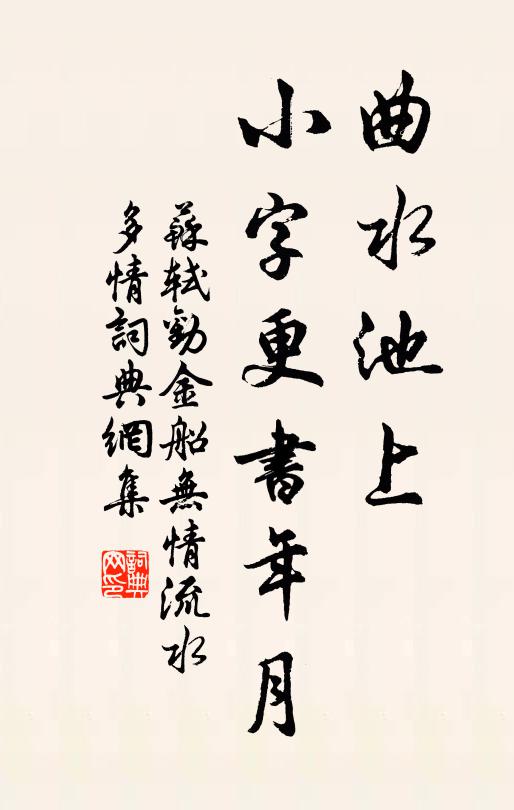 曲水池上
小字更書年月
蘇軾勸金船無情流水
多情詞典網集
詞典
网印